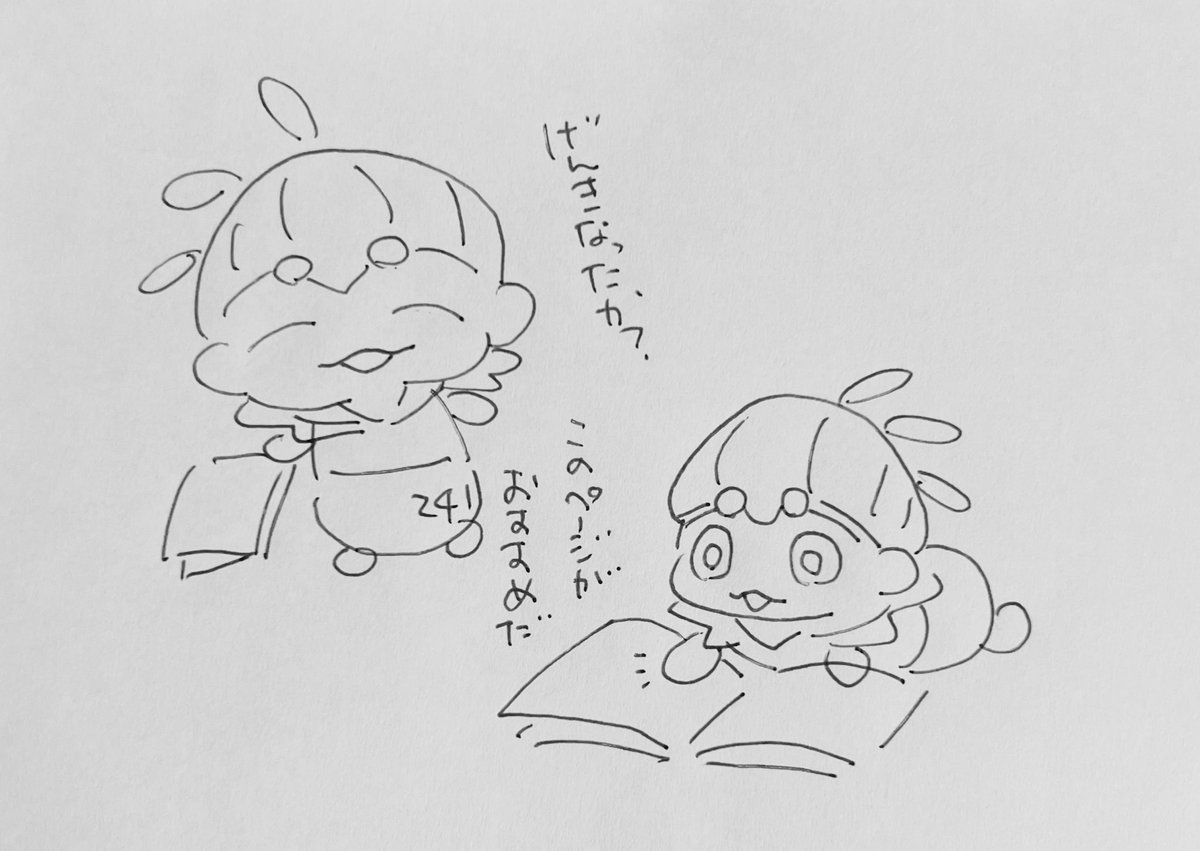 げんきなったか?
このページが…
おすすめだ
241